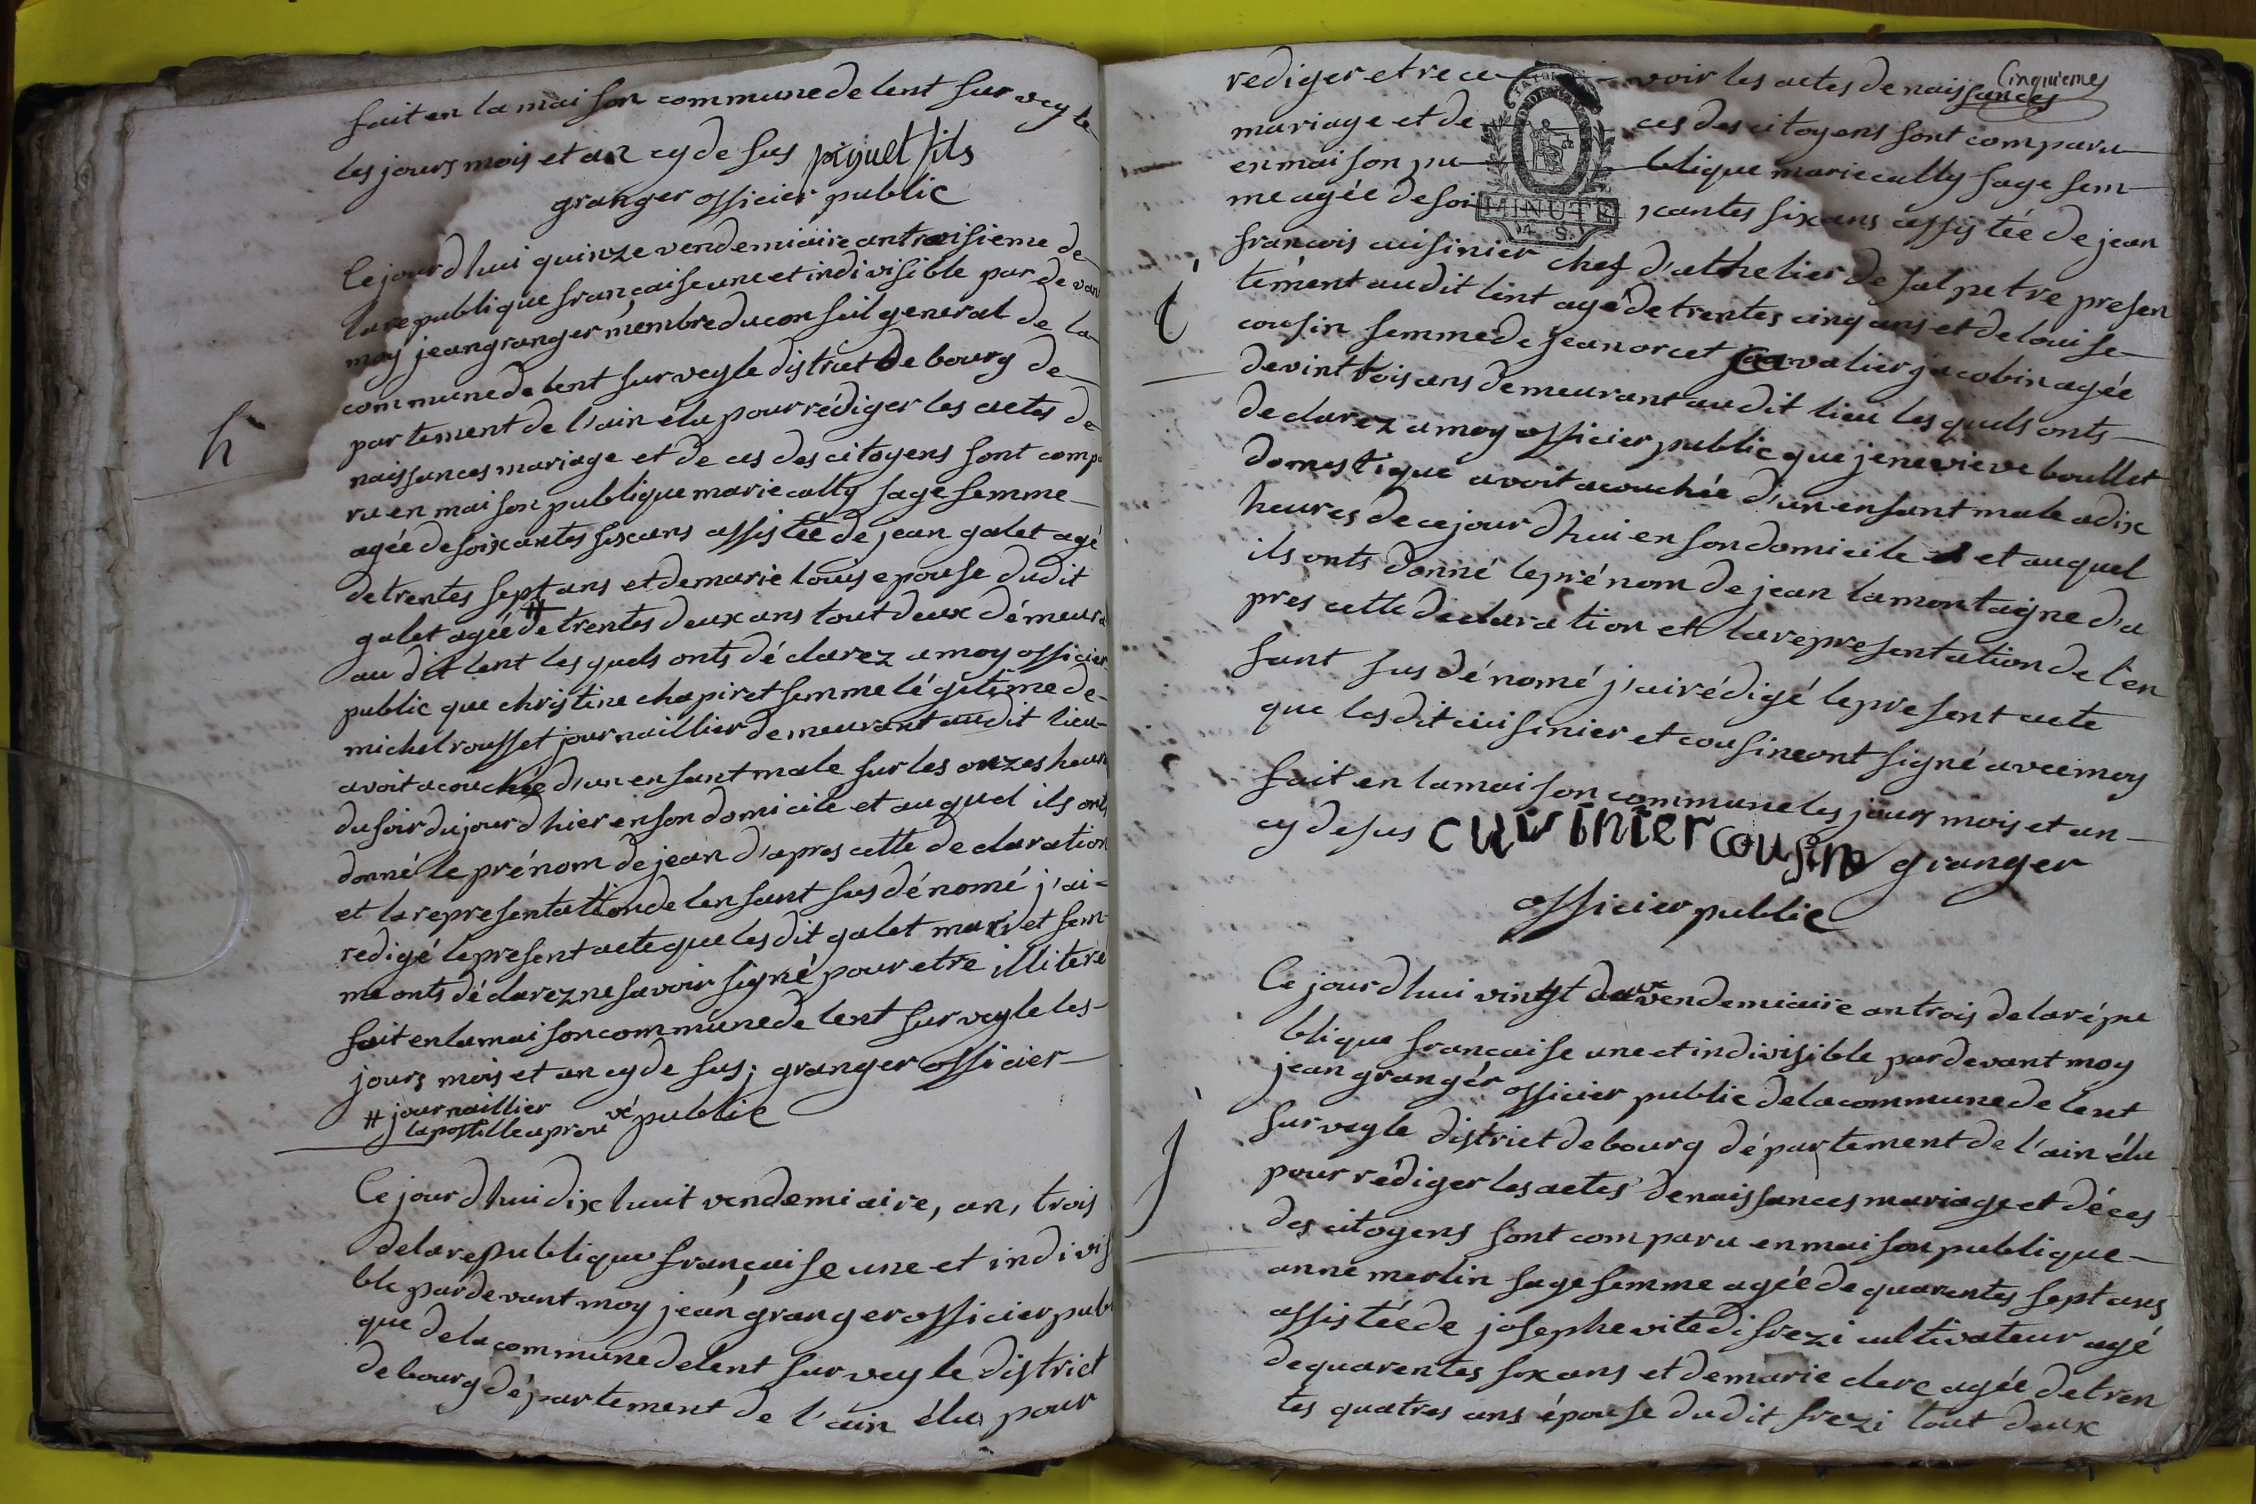 fait en la maison commune de lent sur veyle
les jours mois et an cy de sus piquet fils
granger officier public
Ce jourdhui quinze vendemiaire an troisieme de
la republique française une et indivisible par devan
moy jean granger membre du conseil general de la
commune de lent sur veyle district de bourg de
partement de l'ain élu pour rédiger les actes de
naissances mariage et deces des citoyens sont compa
ru en maison publique marie cally sage femme
agée de soixantes six ans assistée de jean galet agé
de trentes sept ans et de marie louis epouse dudit
galet agée # de trentes deux ans tout deux démeura
au dit lent les quels onts déclarez a moy officier
public que christine chapiret femme légitime de
michel rousset journaillier demeurant audit lieu
avoit acouchée d'un enfant male sur les onzes heur
du soir du jourd hier en son domicile et auquel ils onts
donné le prénom de jean d'apres cette declaration
et la representation de lenfant sus dénomé j'ai
redigé le present acte que les dit galet mari et fem
me onts déclarez ne savoir signé pour etre illiteré
fait en la maison commune de lent sur veyle les
jours mois et an cy de sus; granger officier
# journaillier
la postille aprouvé public
Ce jourdhui dix huit vendemiaire, an, trois
de la republique française une et indivis
ble pardevant moy jean granger officier publi
que de la commune de lent sur veyle district
de bourg département de l'ain élu pour
h
Cinquiemes
rediger et rece voir les actes de naissances
mariage et de ces des citoyens sont comparu
en maison pu blique marie cally sage fem
me agée de soi xantes six ans assistée de jean
MINUTE
francois cuisinier chef d'atthelier de salpetre presen
tement audit lent agé de trentes cinq ans et de louise
cousin femme de jean orcet cavalier jacobin agée
de vint trois ans demeurant audit lieu les quels onts
declarez a moy officier public que jenevieve boullet
domestique avoit acouchée d'un enfant male a dix
heures de ce jourdhui en son domicile et auquel
ils onts donné le prénom de jean lamontaigne d'a
pres cette declaration et la representation de l'en
fant sus dénomé j'ai rédigé le present acte
que les dit cuisinier et cousine ont signé avec moy
fait en la maison commune les jours mois et an
cy de sus cuisinier cousine granger
officier public
Ce jourdhui vingt deux vendemiaire an trois de la répu
blique francaise une et indivisible pardevant moy
jean granger officier public de la commune de lent
sur veyle district de bourg département de l'ain élu
pour rédiger les actes de naissances mariage et déces
des citoyens sont comparu en maison publique
anne merlin sage femme agée de quarentes sept ans
assistée de josephe vite di frezi cultivateur agé
de quarentes six ans et de marie clerc agée de tren
tes quatres ans épouse dudit frezi tout deux